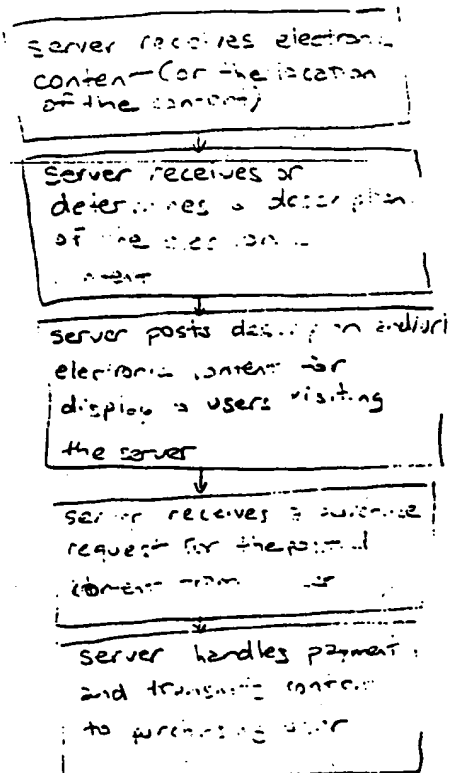 server receives electronic
content (or the location
of the content)
server receives or
determines a description
of the electronic
content
server posts description and/or
electronic content for
display to users visiting
the server
server receives a purchase
request for the posted
content from
server handles payment
and transmits content
to purchasing user